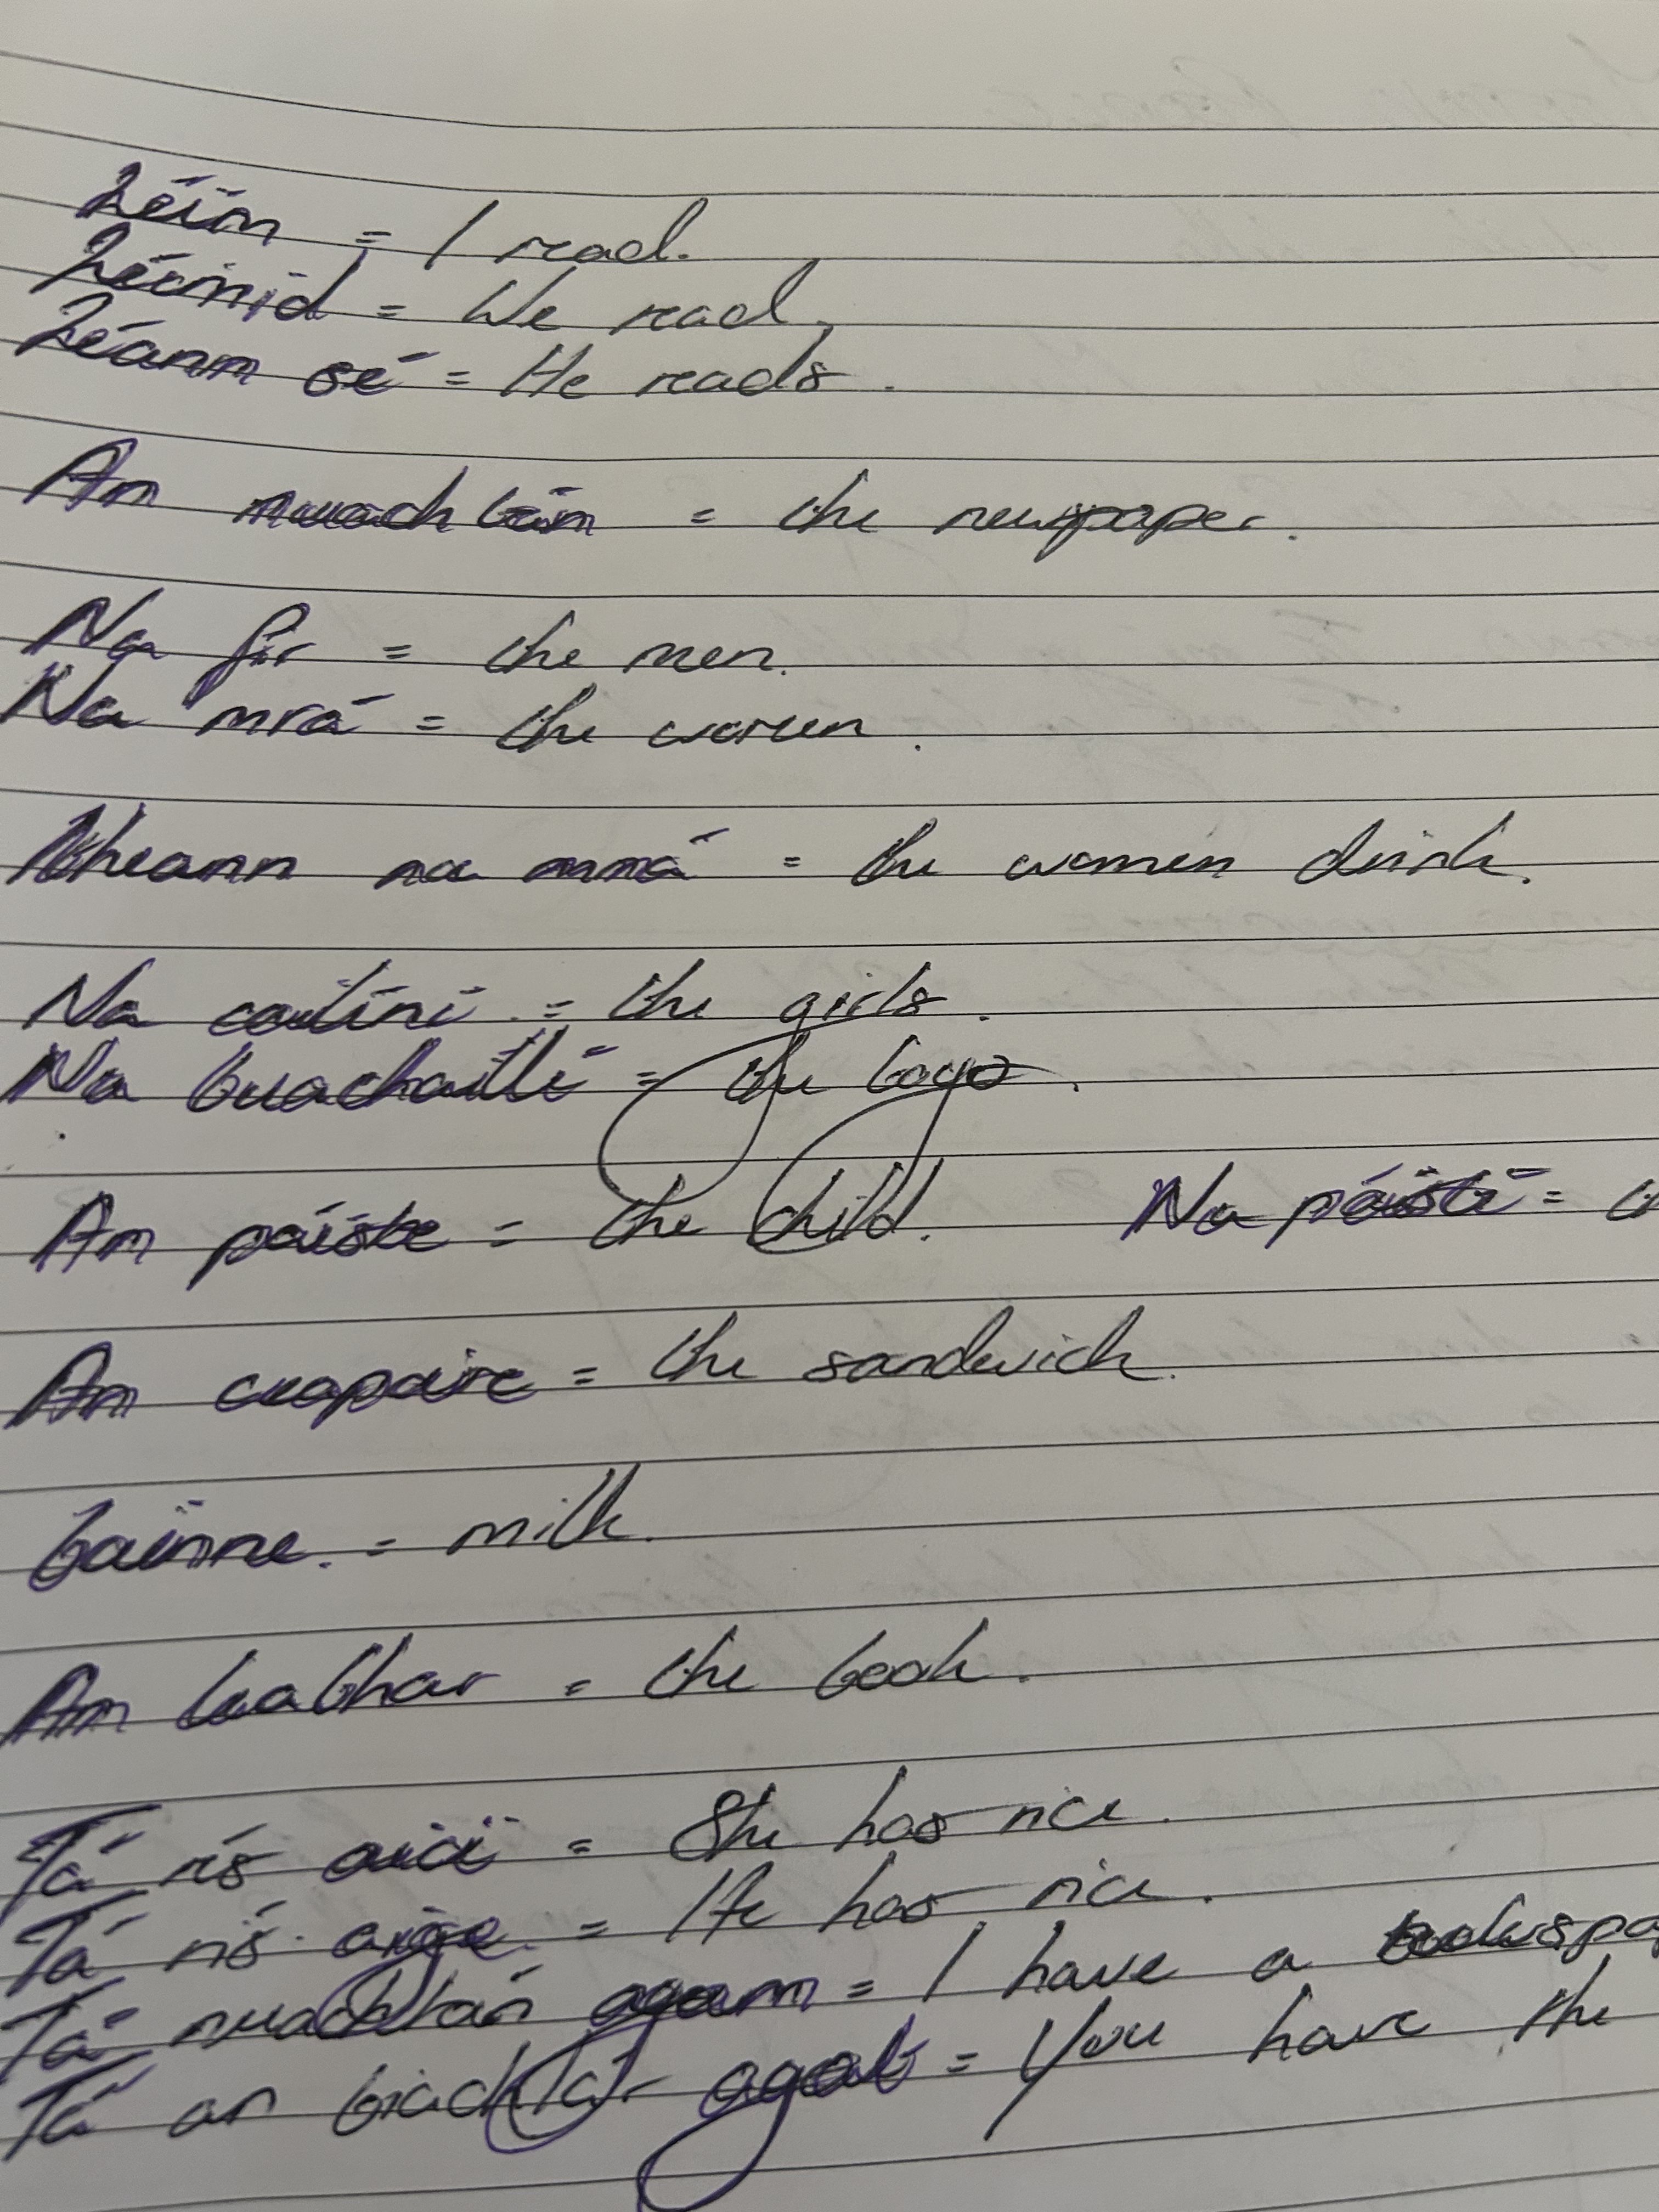 Léim = I read.
Léimid = We read,
Léann sé = He reads.
An nuachtán = the newspaper.
Na fir = the men.
Na mrá = the women.
na mná = the women drink.
Na cailíní = the girls.
Na buachaillí = the boys.
An páiste = the child. Na páistí =
An ceapaire = the sandwich.
bainne. = milk.
An leabhar = the book.
Tá rís aici = She has rice.
Tá rís aige. = He has rice.
Tá nuachtán agam = I have a
Tá an agat = You have the